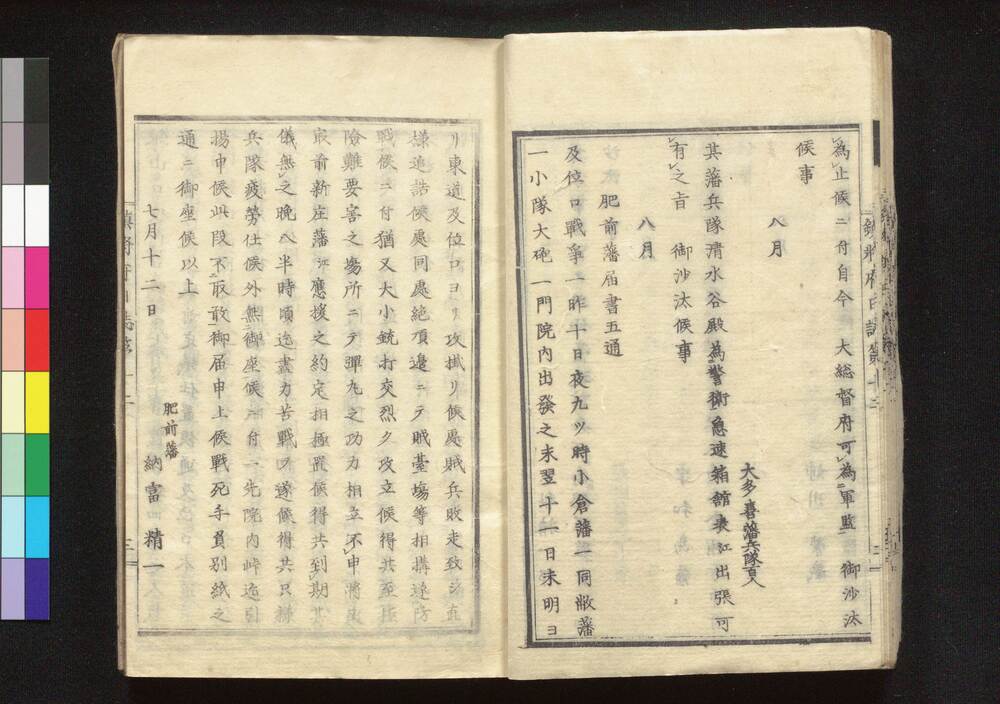 為止候ニ付自今 大総督府可為軍監 御沙汰
候事
八月
大多喜藩兵隊百人
其藩兵隊清水谷殿為警衛急速箱館表江出張可
有之旨 御沙汰候事
八月
肥前藩届書五通
及位口戦争一昨十日夜九ツ時小倉藩一同敝藩
一小隊大砲一門院内出発之末翌十一日未明ヨ
リ東道及位口ヨリ攻掛リ候処賊兵敗走致シ直
様追詰候処同処絶頂辺ニテ賊台場等相搆遂防
戦候ニ付猶又大小銃打交烈ク攻立候得共至極
険難要害之場所ニテ弾丸之功力相立不申将又
最前新庄藩江応援之約定相極置候得共到期其
儀無之晩八半時頃迄尽力苦戦フ遂候得共只様
兵隊疲労仕候外無御座候ニ付一先院内峠迄引
揚申候此段不取敢御届申上候戦死手負別紙之
通ニ御座候以上
七月十二日
肥前藩 納富精一
鎮将府日誌第十二
二
三